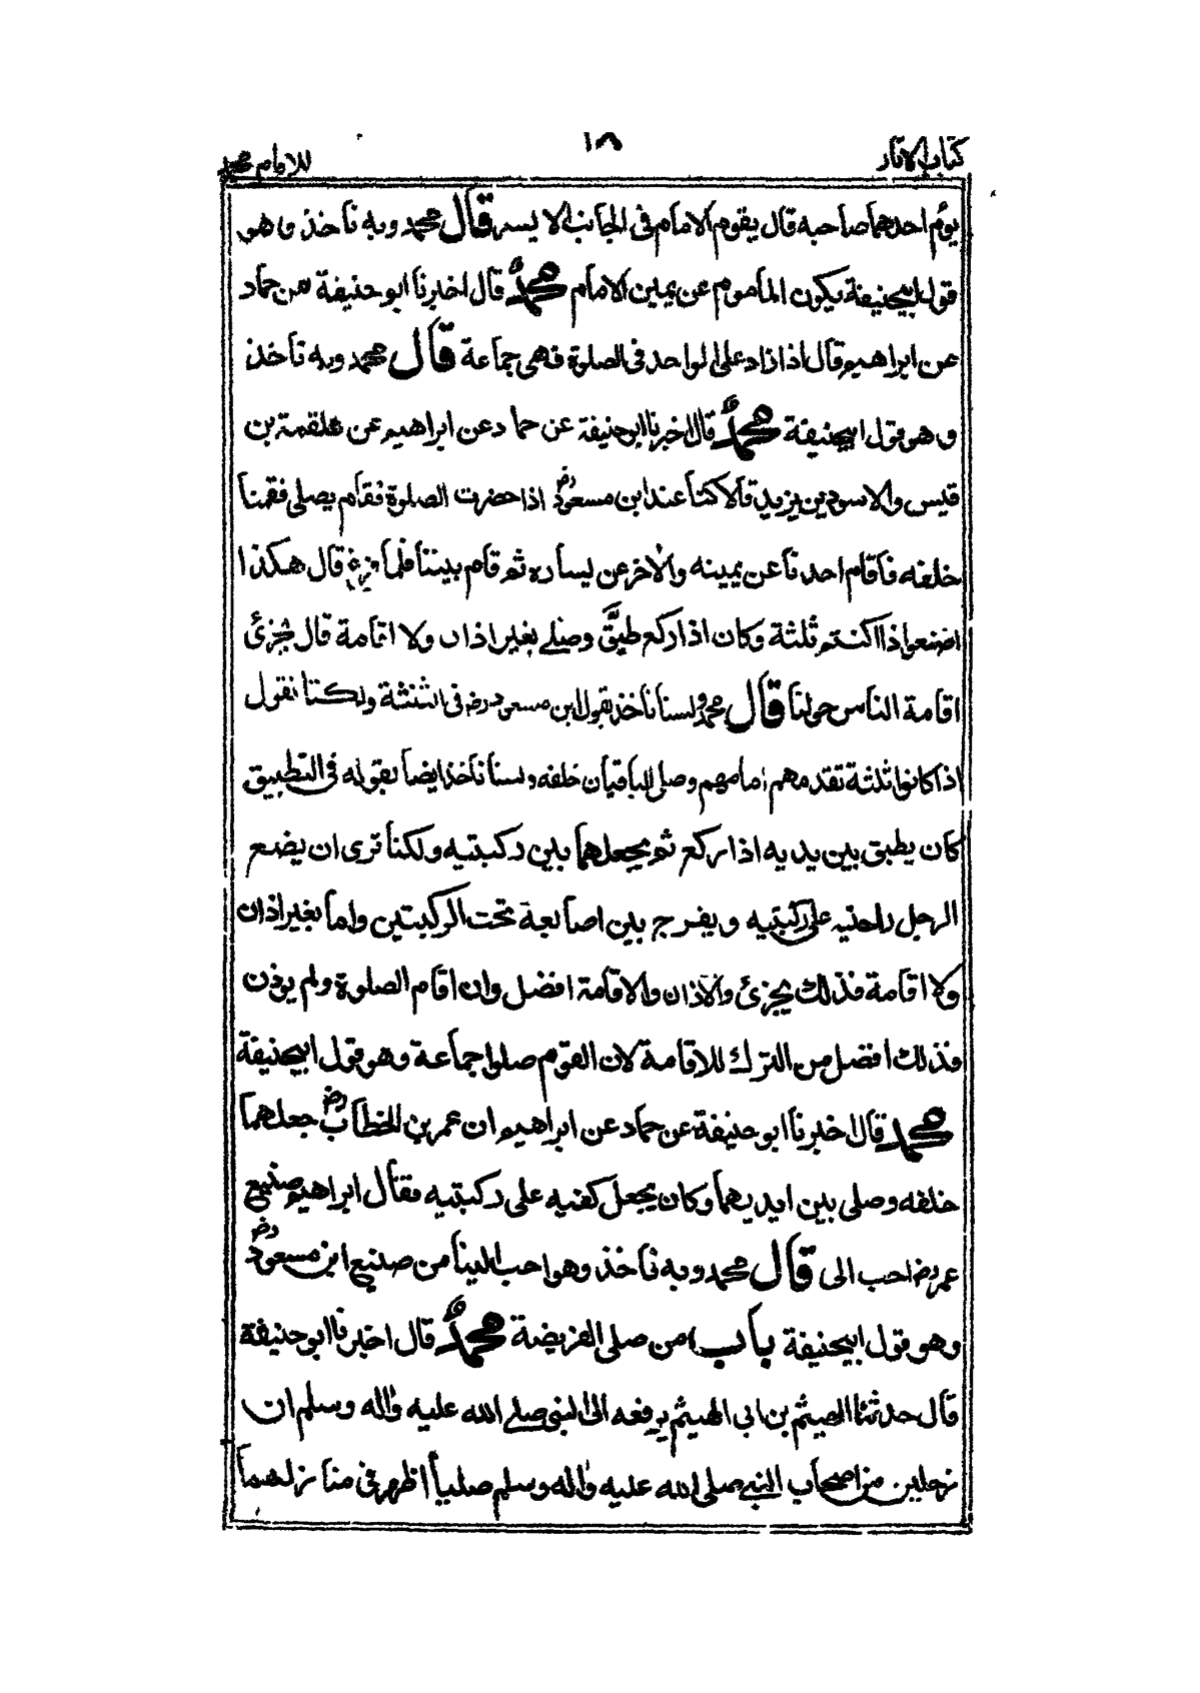 كتاب الاثار
١٨
للامام محمد
يؤم احدهما صاحبه قال يقوم الامام فى الجانب الايسر قال محمد وبه نأخذ وهو
قول ابيحنيفة يكون المأموم عن يمين الامام محمد قال اخبرنا ابو حنيفة عن حماد
عن ابراهيم قال اذا زاد على الواحد فى الصلوة فهى جماعة قال محمد وبه نأخذ
وهو قول ابيحنيفة محمد قال اخبرنا ابو حنيفة عن حماد عن ابراهيم عن علقمة بن
قيس والاسود بن يزيد قالا كنا عند ابن مسعود رض اذا حضرت الصلوة فقام يصلى فقمنا
خلفه فاقام احدنا عن يمينه والاخر عن يساره ثم قام بيننا فلما فرغ قال هكذا
اصنعوا اذا كنتم ثلثة وكان اذا ركع طبق وصلے بغير اذان ولا اقامة قال يجزئ
اقامة الناس حولنا قال محمد ولسنا نأخذ بقول ابن مسعود رض فى الثلثة ولكنا نقول
اذا كانوا ثلثة تقدمهم امامهم وصلى الباقيان خلفه ولسنا نأخذ ايضا بقوله فى التطبيق
كان يطبق بين يديه اذا ركع ثم يجعلهما بين ركبتيه ولكنا نرى ان يضع
الرجل راحتيه على ركبتيه ويفرج بين اصابعه تحت الركبتين واما بغير اذان
ولا اقامة فذلك يجزئ والاذان والاقامة افضل وان اقام الصلوة ولم يؤذن
فذلك افضل من الترك للاقامة لان القوم صلوا جماعة وهو قول ابيحنيفة
محمد قال اخبرنا ابو حنيفة عن حماد عن ابراهيم ان عمر بن الخطاب رض جعلهما
خلفه وصلى بين ايديهما وكان يجعل كفيه على ركبتيه فقال ابراهيم صنيع
عمر رض احب الى قال محمد وبه نأخذ وهو احب الينا من صنيع ابن مسعود رض
وهو قول ابيحنيفة باب من صلى الفريضة محمد قال اخبرنا ابو حنيفة
قال حدثنا الهيثم بن ابى الهيثم يرفعه الى النبى صلے الله عليه واله وسلم ان
رجلين من اصحاب النبى صلى الله عليه واله وسلم صليا الظهر فى منازلهما